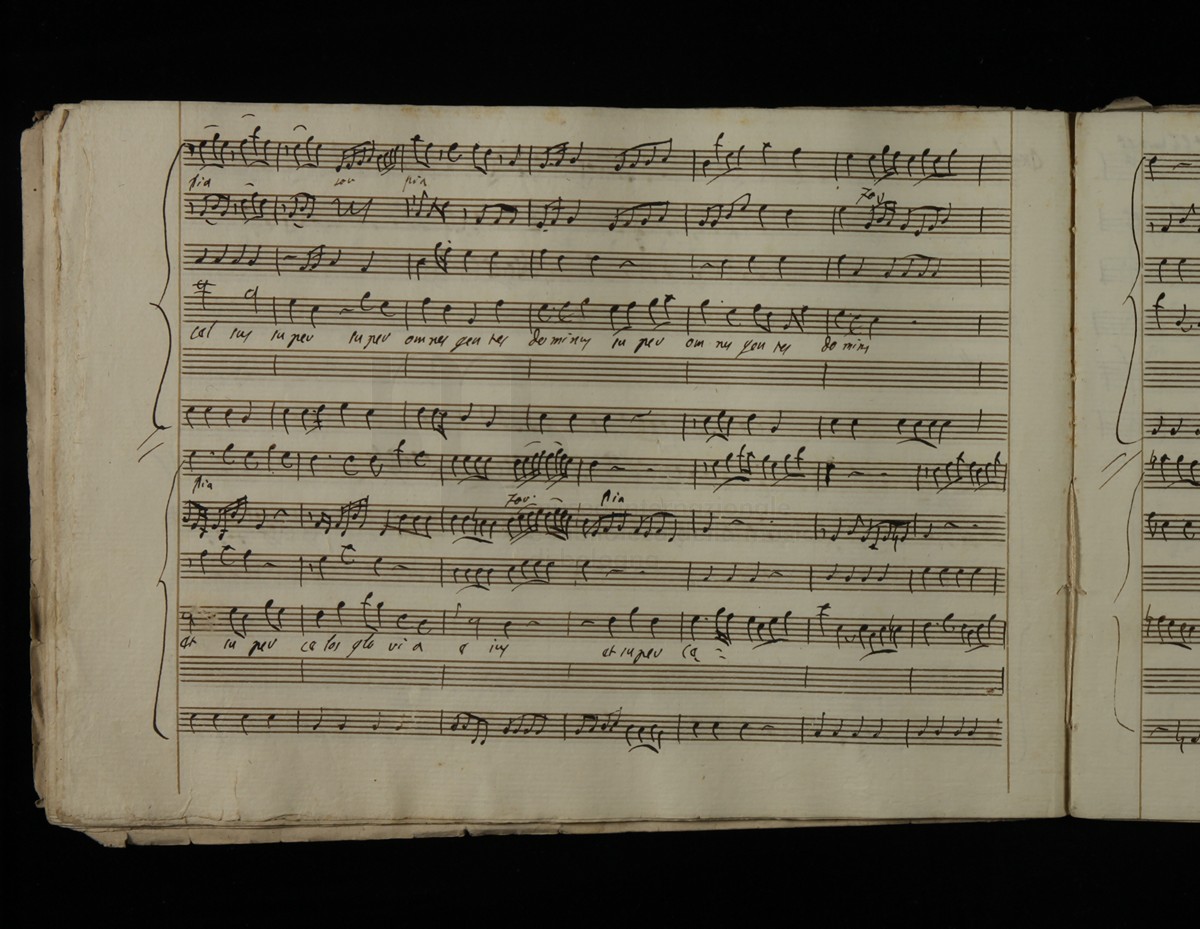 pia for pia
for
cel sus super super omnes gentes dominus super om nes gentes domini
pia
for pia
et su per cę los glo ri a e ius et super cę =